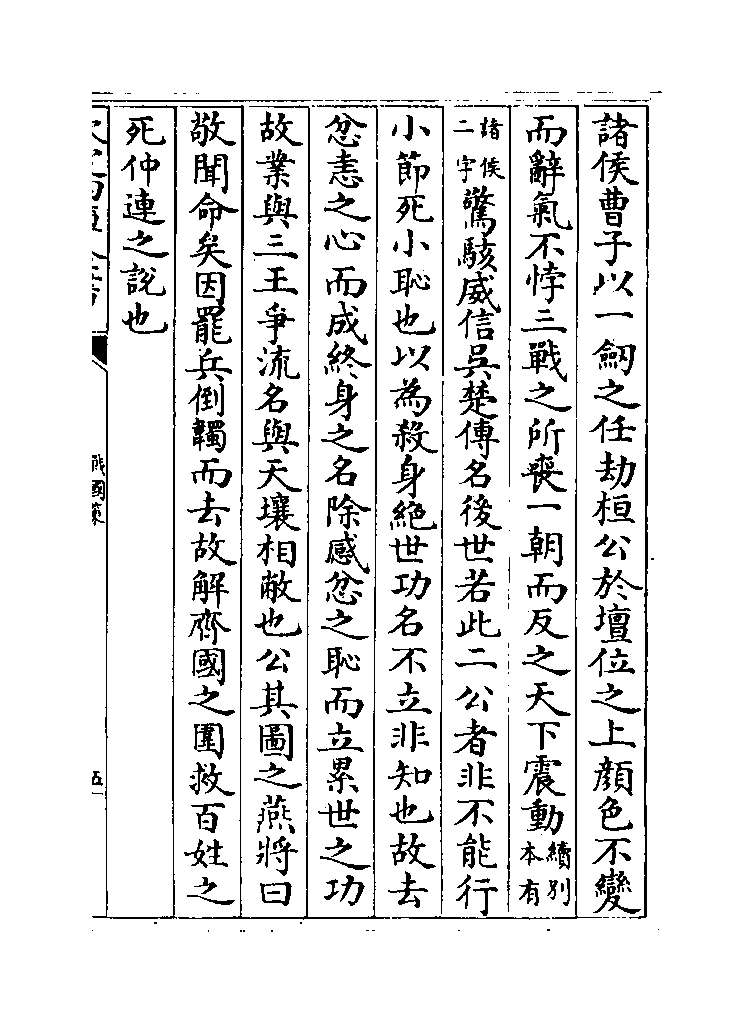 諸侯曹子以一劒之任劫桓公於壇位之上顔色不變
而辭氣不悖三戰之所喪一朝而反之天下震動續别本有
諸侯二字驚駭威信吳楚傳名後世若此二公者非不能行
小節死小恥也以為殺身絶世功名不立非知也故去
忿恚之心而成終身之名除感忿之恥而立累世之功
故業與三王爭流名與天壤相敝也公其圖之燕將曰
敬聞命矣因罷兵倒韣而去故解齊國之圍救百姓之
死仲連之説也
戰國策
五